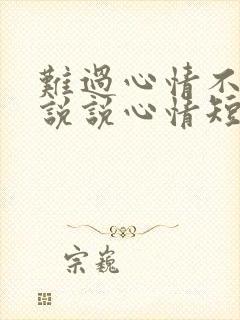 難過心情不
說說心情短
宗巍